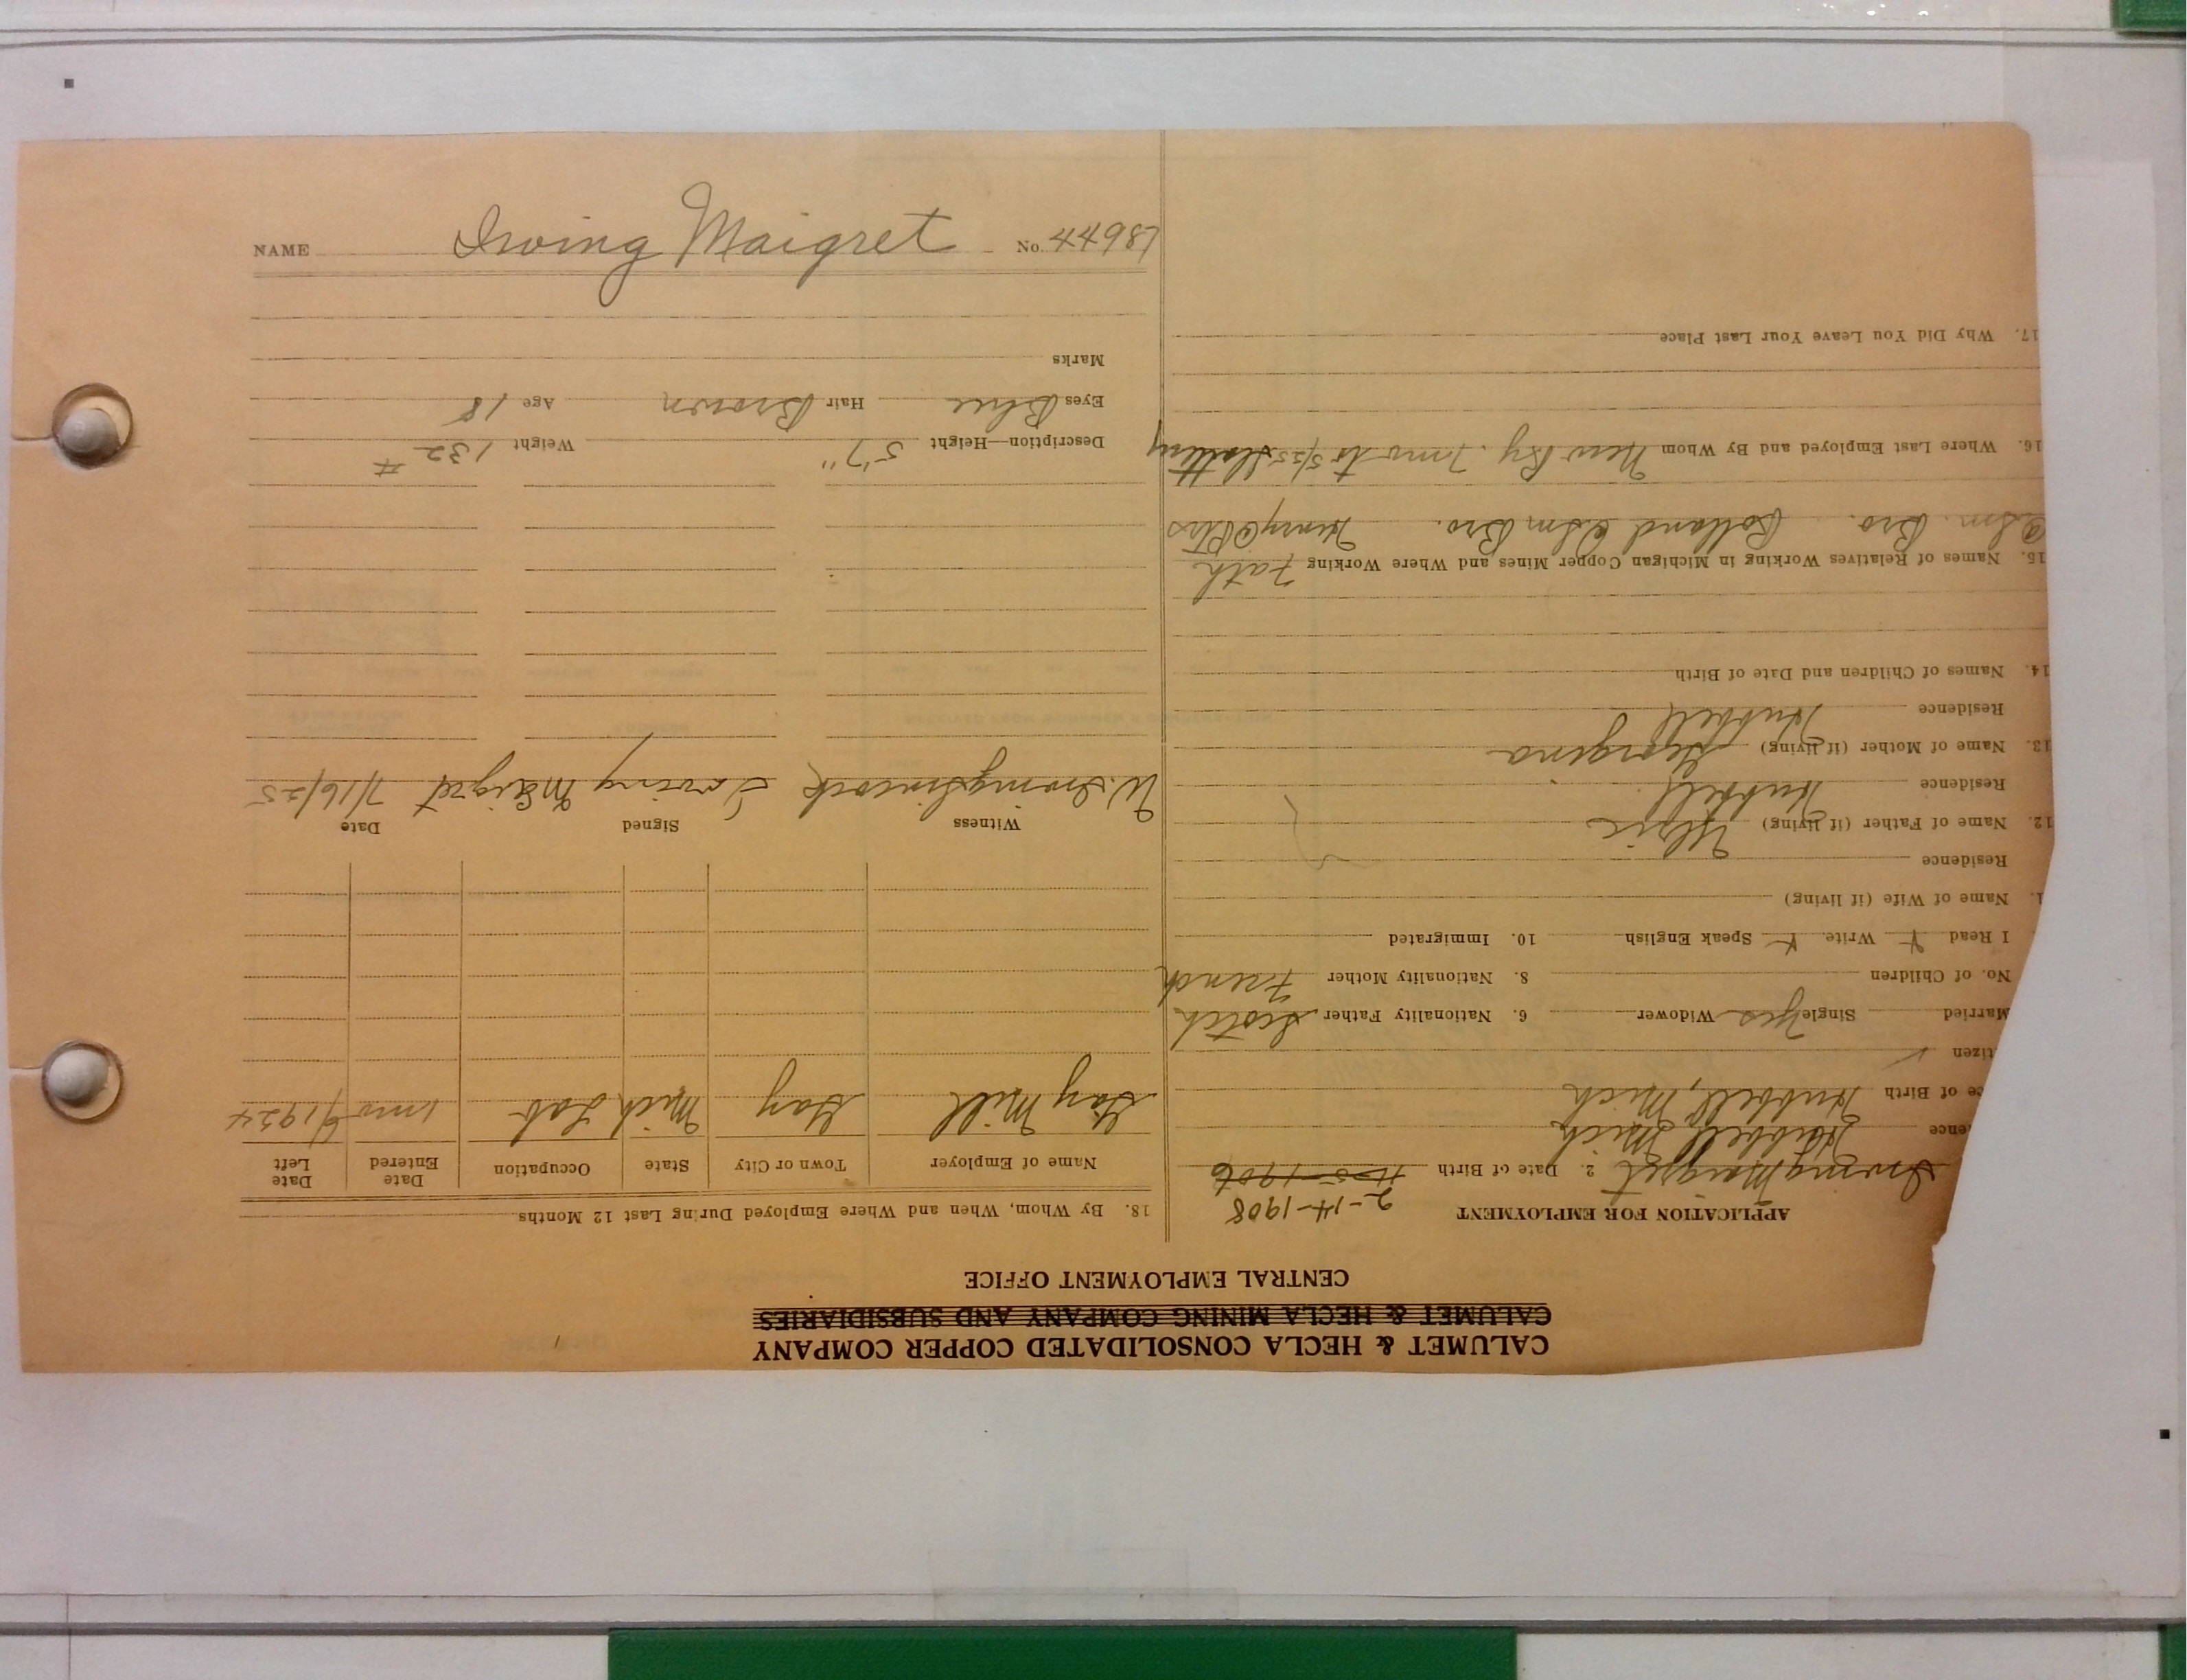 NAME Irving Maigret No. 44987
CALUMET & HECLA CONSOLIDATED COPPER COMPANY
CALUMET & HECLA MINING COMPANY AND SUBSIDIARIES
CENTRAL EMPLOYMENT OFFICE
APPLICATION FOR EMPLOYMENT 2-14-1908
Irving Maigret 2. Date of Birth 1906
ence Hubbell Mich
ce of Birth Hubbell, Mich
tizen ✓
Married Single Yes Widower 6. Nationality Father Scotch
No. of Children 8. Nationality Mother French
I Read Y Write Y Speak English 10. Immigrated
1. Name of Wife (if living)
Residence
12. Name of Father (if living) Ulric
Residence Hubbell
13. Name of Mother (if living) Georgina
Residence Hubbell
14. Names of Children and Date of Birth
15. Names of Relatives Working in Michigan Copper Mines and Where Working Fath
Bro. Rolland Bro. Henry
16. Where Last Employed and By Whom New Ry. 7 mo to 5/25
17. Why Did You Leave Your Last Place
18. By Whom, When and Where Employed During Last 12 Months
Name of Employer Town or City State Occupation Date Entered Date Left
Gay Mill Gay Mich Lab 1 mo 1924
Witness Signed Date
W. Irving Maigret 7/16/25
Description—Height 5'7" Weight 132 #
Eyes Blue Hair Brown Age 18
Marks